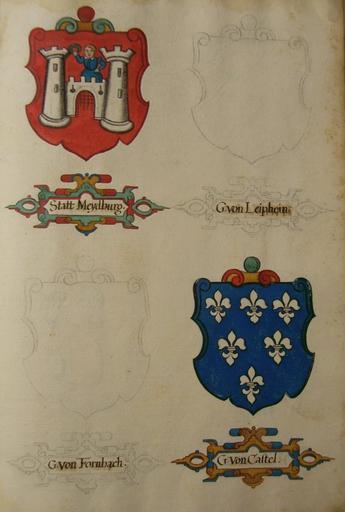 Statt Meydburg.
G. von Leipheim.
G. von Fornbach.
G. von Cattel.